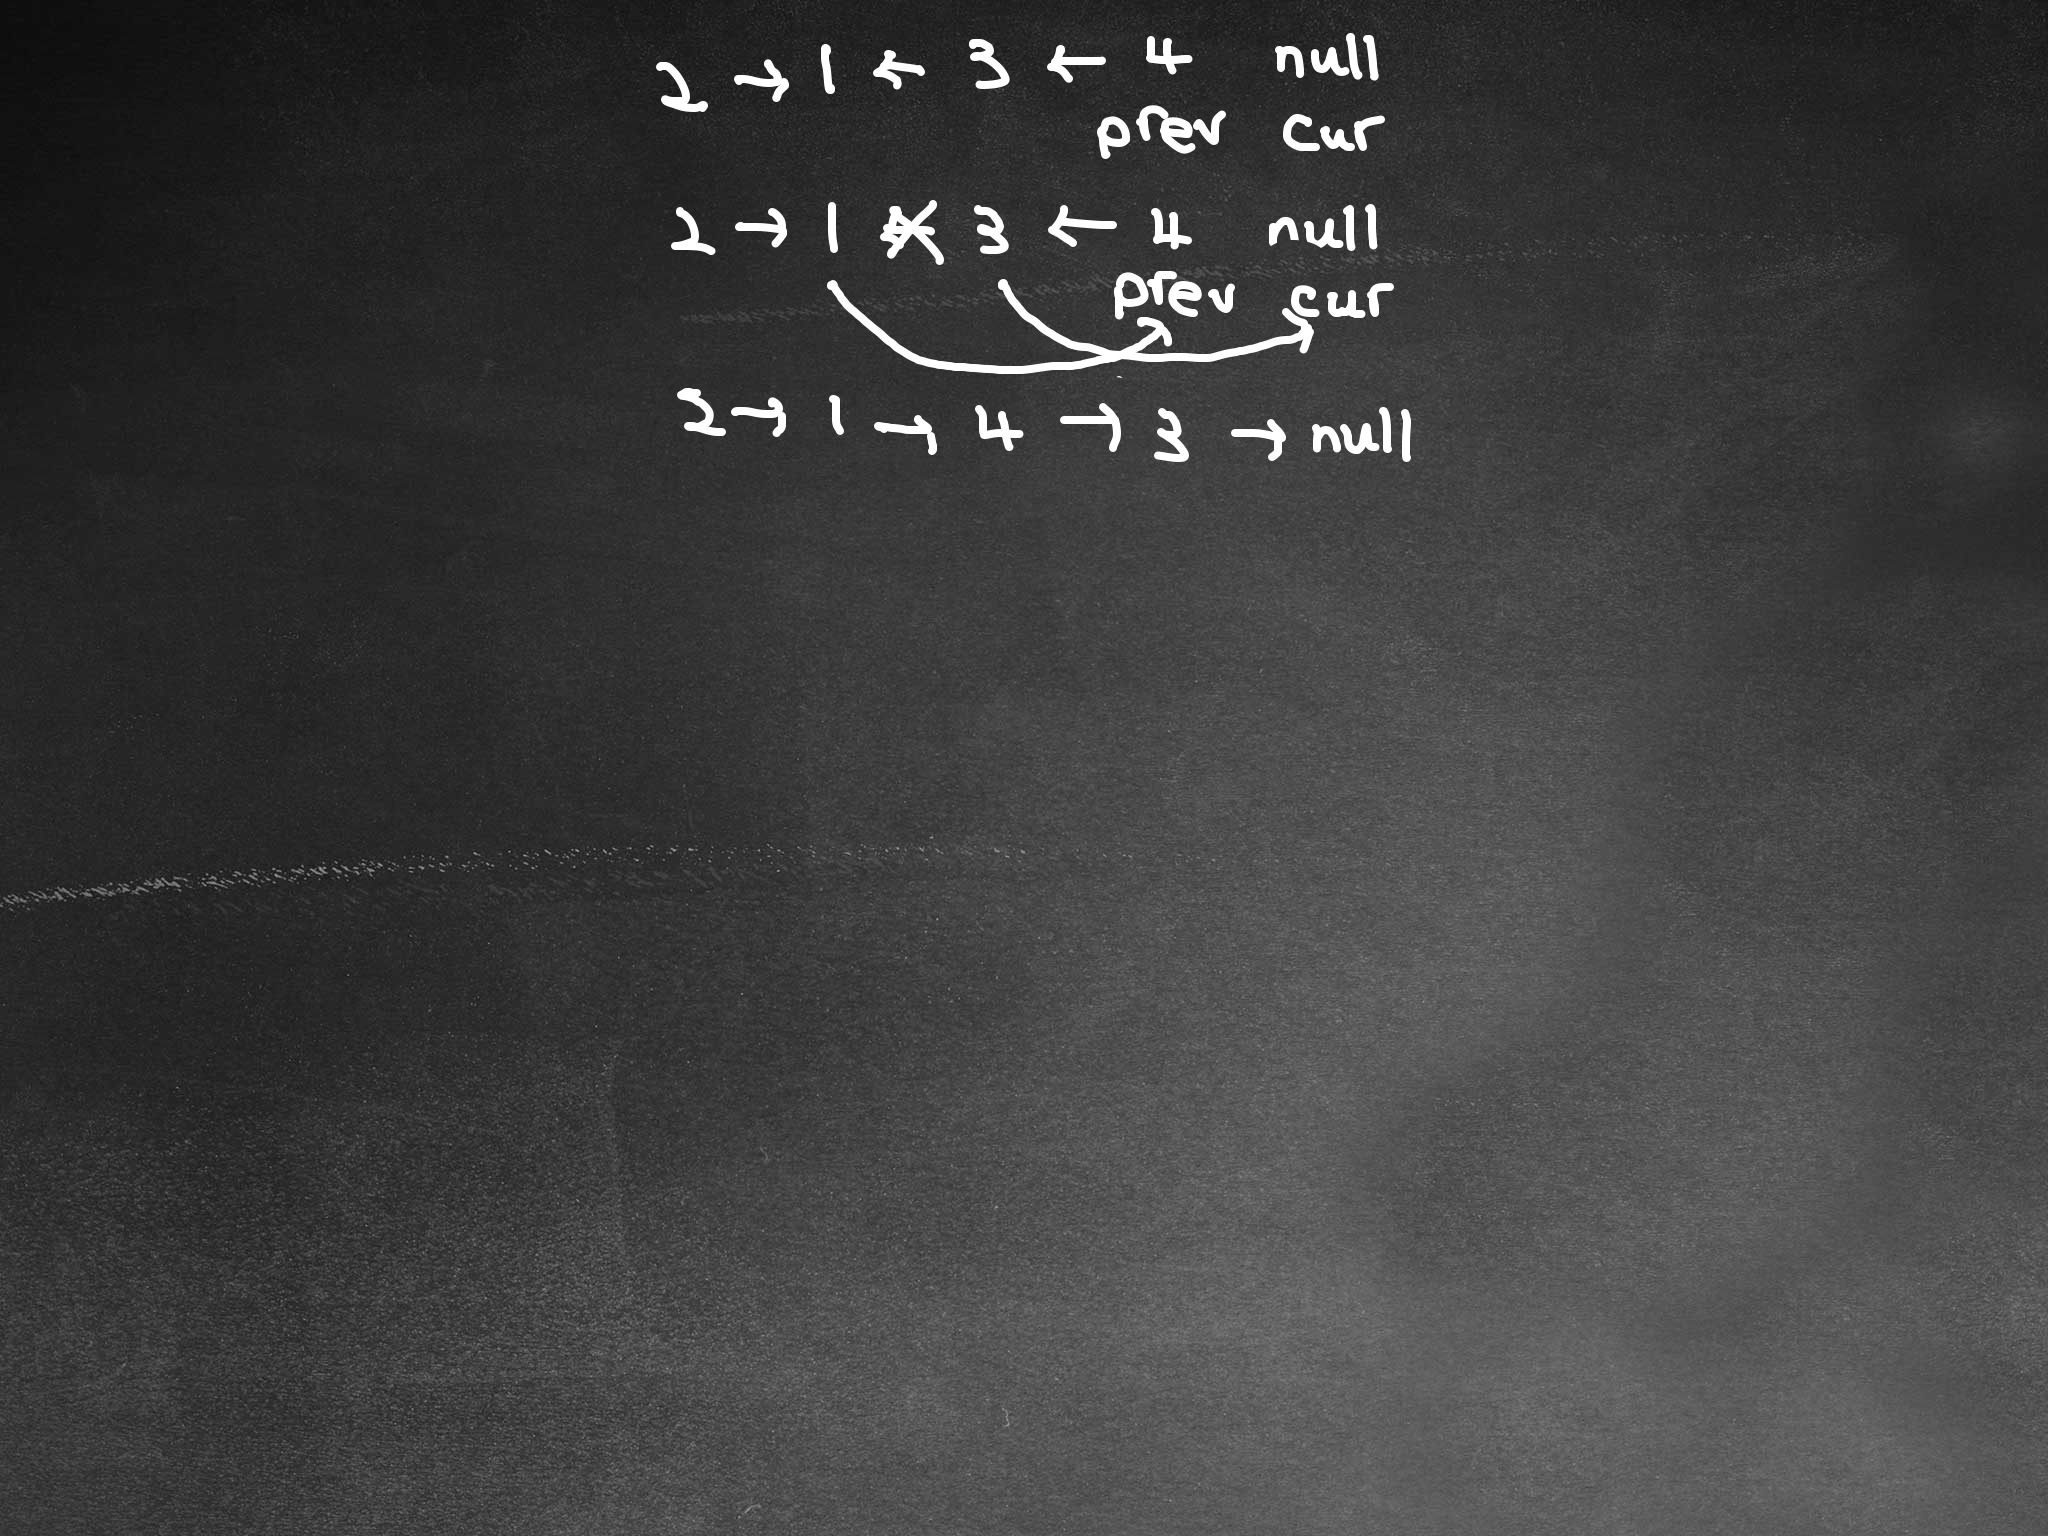 2 → 1 ← 3 ← 4 null
prev cur
2 → 1 ← 3 ← 4 null
prev cur
2 → 1 → 4 → 3 → null